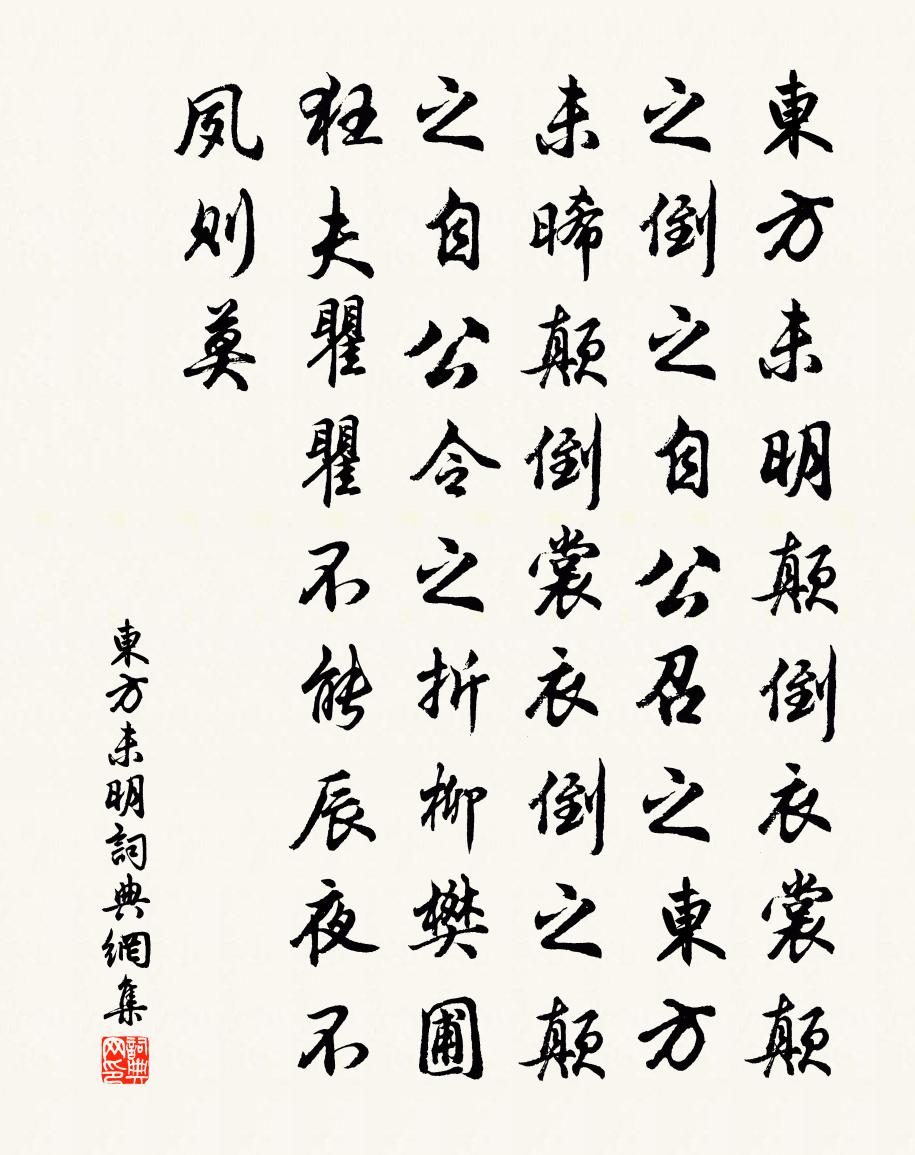 東方未明顛倒衣裳顛
之倒之自公召之東方
未晞顛倒裳衣倒之顛
之自公令之折柳樊圃
狂夫瞿瞿不能辰夜不
夙則莫
東方未明詞典網集
詞典网印